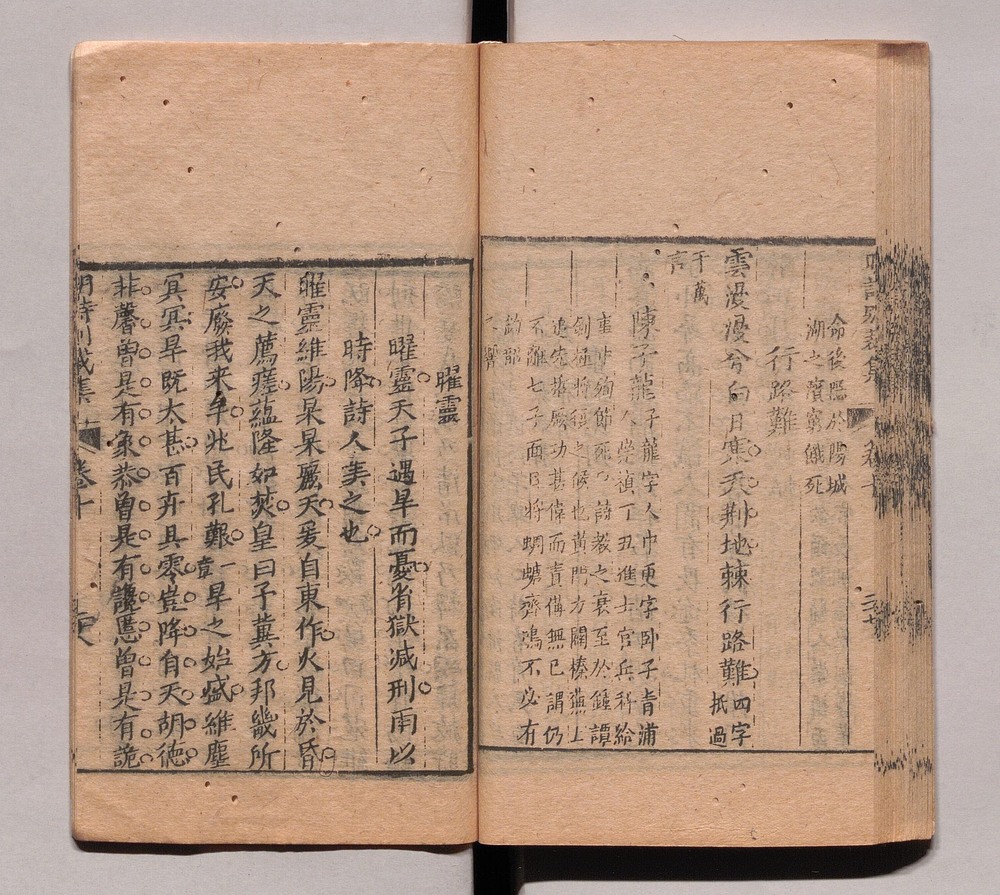 命後隱於陽城
湖之濱窮餓死
行路難
雲漫漫兮白日寒天荆地棘行路難四字
抵過
千萬
言
陳子龍子龍字人中更字卧子青浦
人崇禎丁丑進士官兵科給
事中殉節死詩教之衰至於鍾譚
剝極將復之候也黄門力闢榛蕪上
追先哲厥功甚偉而責備無已謂仍
不離七子面目將蜩螗齊鳴不必有
鈞韶
之響
曜靈
曜靈天子遇旱而憂省獄減刑雨以
時降詩人美之也
曜靈維陽杲杲麗天爰自東作火見於昏
天之薦瘥蘊隆如焚皇曰予冀方邦畿所
安廢我来牟兆民孔艱章一旱之始盛維塵
冥冥旱既太甚百卉具零豈降自天胡德
非馨曽是有象恭曽是有讒慝曽是有詭
明詩别裁集
卷十